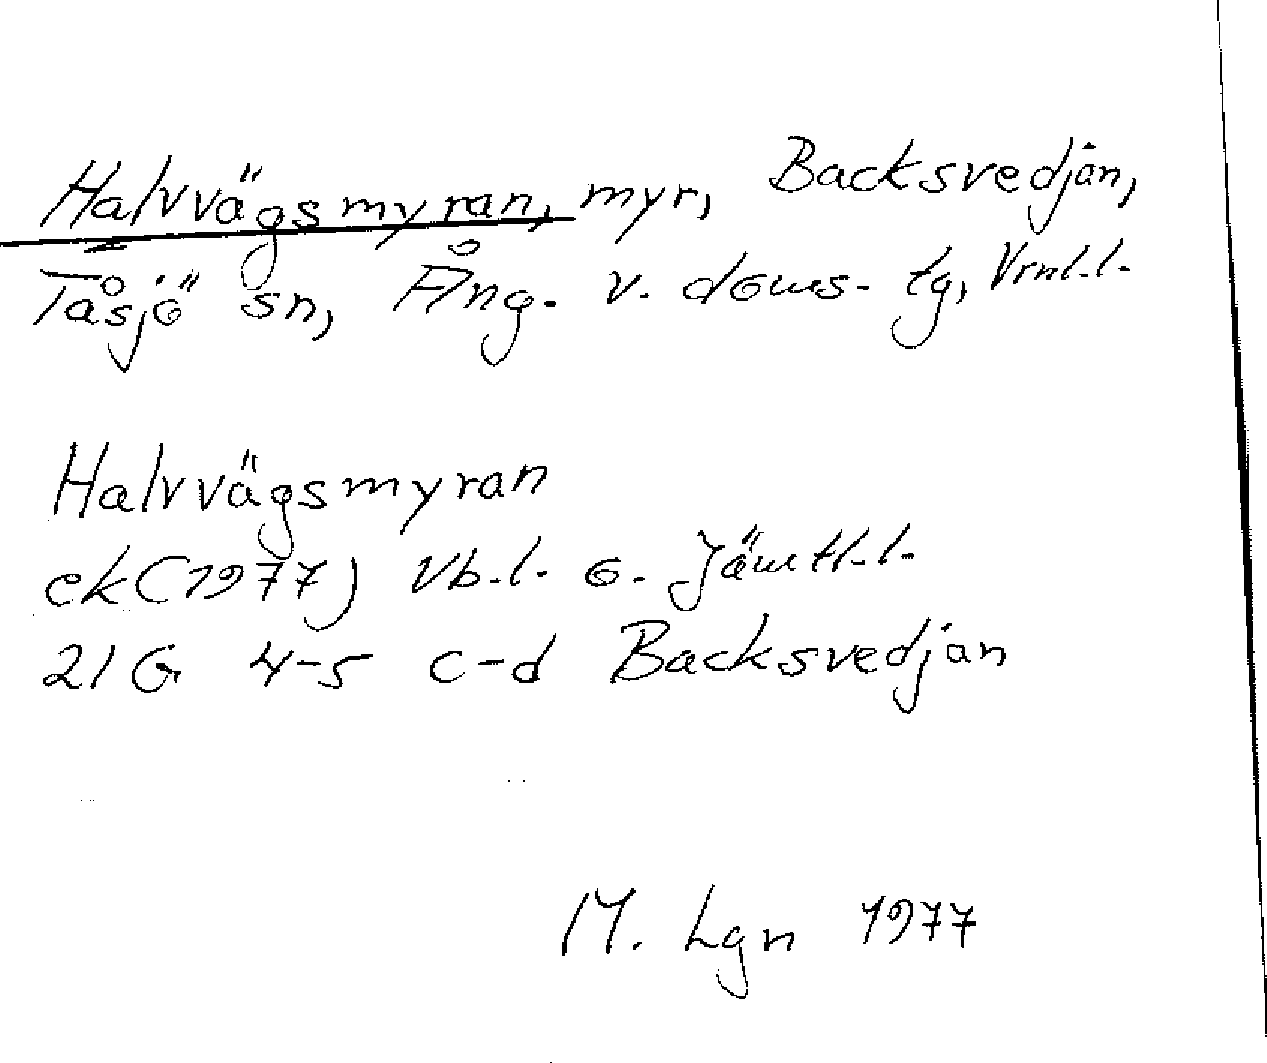 Halvvägsmyran, myr, Backsvedjan,
Tåsjö sn, Ång. v. doms. tg, Vrnl.l.
Halvvägsmyran
ek (1977) Vb.l. o. Jämtl.l.
21G 4-5 c-d Backsvedjan
M. Lgn 1977